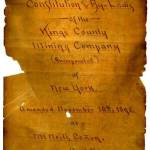 Constitution & By-Laws
of the
Kings County
Mining Company
(Incorporated)
of
New York.
Amended November 16th, 1898,
at